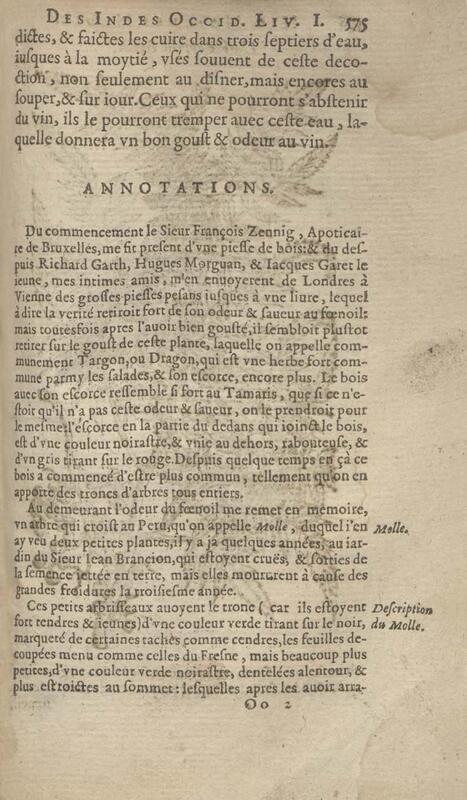 DES INDES OCCID. LIV. I. 575
dictes, & faictes les cuire dans trois septiers d'eau,
iusques à la moytié, vsés souuent de ceste deco-
ction, non seulement au disner, mais encores au
souper, & sur iour. Ceux qui ne pourront s'abstenir
du vin, ils le pourront tremper auec ceste eau, la-
quelle donnera vn bon goust & odeur au vin.
ANNOTATIONS.
Du commencement le Sieur François Zennig, Apoticai-
re de Bruxelles, me fit present d'vne piesse de bois: & du des-
puis Richard Garth, Hugues Morguan, & Iacques Garet le
ieune, mes intimes amis, m'en enuoyerent de Londres à
Vienne des grosses piesses pesans iusques à vne liure, lequel
à dire la verité retiroit fort de son odeur & saueur au fœnoil:
mais toutesfois apres l'auoir bien gousté, il sembloit plustot
retirer sur le goust de ceste plante, laquelle on appelle com-
munement Targon, ou Dragon, qui est vne herbe fort com-
mune parmy les salades, & son escorce, encore plus. Le bois
auec son escorce ressemble si fort au Tamaris, que si ce n'e-
stoit qu'il n'a pas ceste odeur & saueur, on le prendroit pour
le mesme: l'escorce en la partie du dedans qui ioinct le bois,
est d'vne couleur noirastre, & vnie au dehors, rabouteuse, &
d'vn gris tirant sur le rouge. Despuis quelque temps en çà ce
bois a commencé d'estre plus commun, tellement qu'on en
apporte des troncs d'arbres tous entiers.
Au demeurant l'odeur du fœnoil me remet en mémoire,
vn arbre qui croist au Peru, qu'on appelle Molle, duquel i'en
Molle.
ay veu deux petites plantes, il y a jà quelques années, au iar-
din du Sieur Iean Brancion, qui estoyent cruës, & sorties de
la semence iettée en terre, mais elles moururent à cause des
grandes froidures la troisiesme année.
Ces petits arbrisseaux auoyent le tronc (car ils estoyent
Description
fort tendres & ieunes) d'vne couleur verde tirant sur le noir,
du Molle.
marqueté de certaines taches comme cendres, les feuilles de-
coupées menu comme celles du Fresne, mais beaucoup plus
petites, d'vne couleur verde noirastre, dentelées alentour, &
plus estroictes au sommet: lesquelles apres les auoir arra-
Oo 2